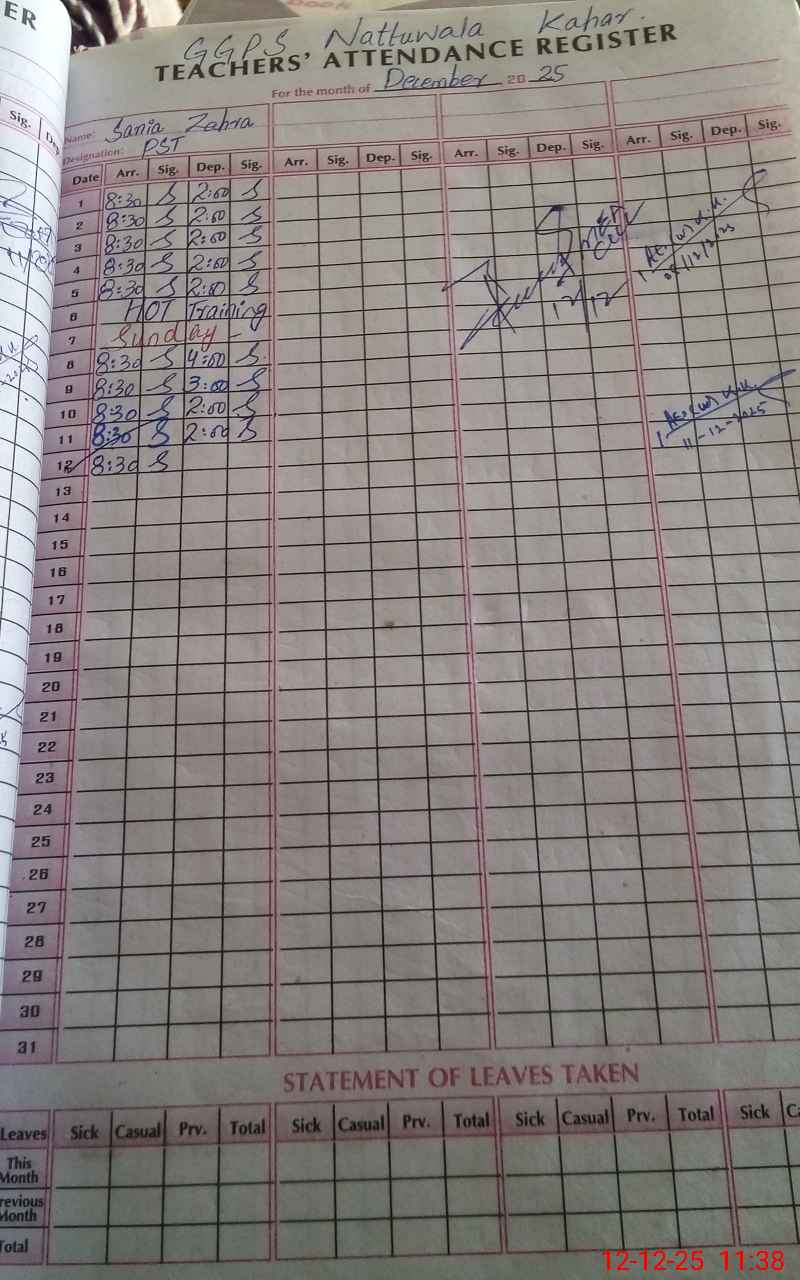 ER
GGPS Nattuwala Kahar.
TEACHERS' ATTENDANCE REGISTER
For the month of December 20 25
Name: Sania Zahra
Designation: PST
Sig. De
Date Arr. Sig. Dep. Sig. Arr. Sig. Dep. Sig. Arr. Sig. Dep. Sig. Arr. Sig. Dep. Sig.
1 8:30 S 2:00 S
2 8:30 S 2:00 S
3 8:30 S 2:00 S
4 8:30 S 2:00 S
5 8:30 S 2:00 S
6 HOT Training
7 Sunday -
8 8:30 S 4:00 S
9 8:30 S 3:00 S
10 8:30 S 2:00 S
11 8:30 S 2:00 S
12 8:30 S
13
14
15
16
17
18
19
20
21
22
23
24
25
26
27
28
29
30
31
12/12
11-12-2025
STATEMENT OF LEAVES TAKEN
Leaves Sick Casual Prv. Total Sick Casual Prv. Total Sick Casual Prv. Total Sick Ca
This Month
revious Month
Total
12-12-25 11:38